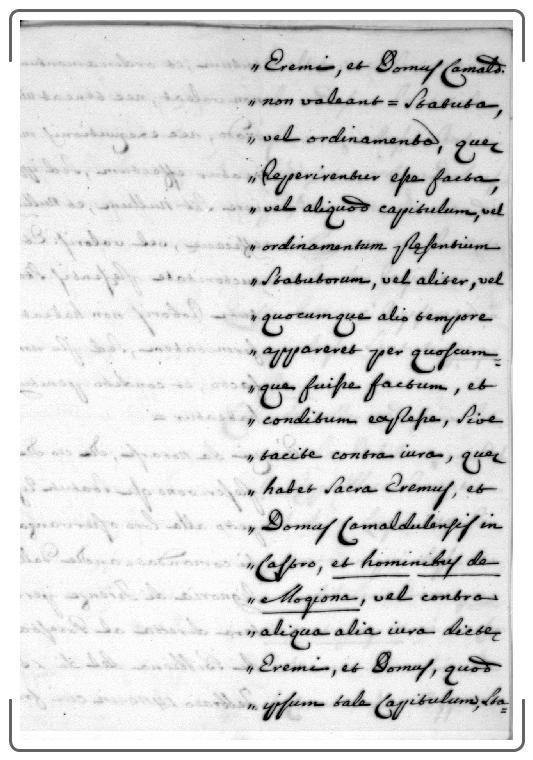 „ Eremi, et Domus Camald.
„ non valeant = Statuta,
„ vel ordinamenta, quę
„ Reperirentur esse facta,
„ vel aliquod capitulum, vel
„ ordinamentum pręsentium
„ Statutorum, vel aliter, vel
„ quocumque alio tempore
„ appareret per quoscum=
„ que fuisse factum, et
„ conditum expręsse, sive
„ tacite contra iura, quę
„ habet Sacra Eremus, et
„ Domus Camaldulensis in
„ Castro, et hominibus de
„ Mogiona, vel contra
„ aliqua alia iura dictę
„ Eremi, et Domus, quod
„ ipsum tale Capitulum, Sta=